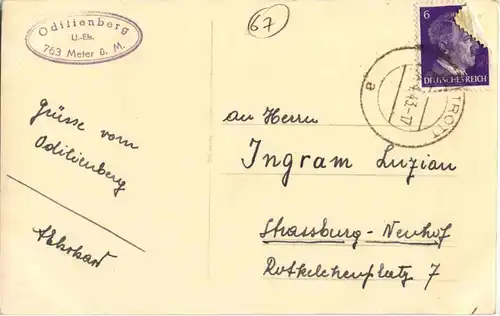 Odilienberg
U.-Els.
763 Meter ü. M.
67
6
DEUTSCHES REICH
43.-17
TROTT
a
Grüsse vom
Odilienberg
an Herrn
Ingram Luzian
Strassburg-Neuhof
Rotkelchenplatz 7